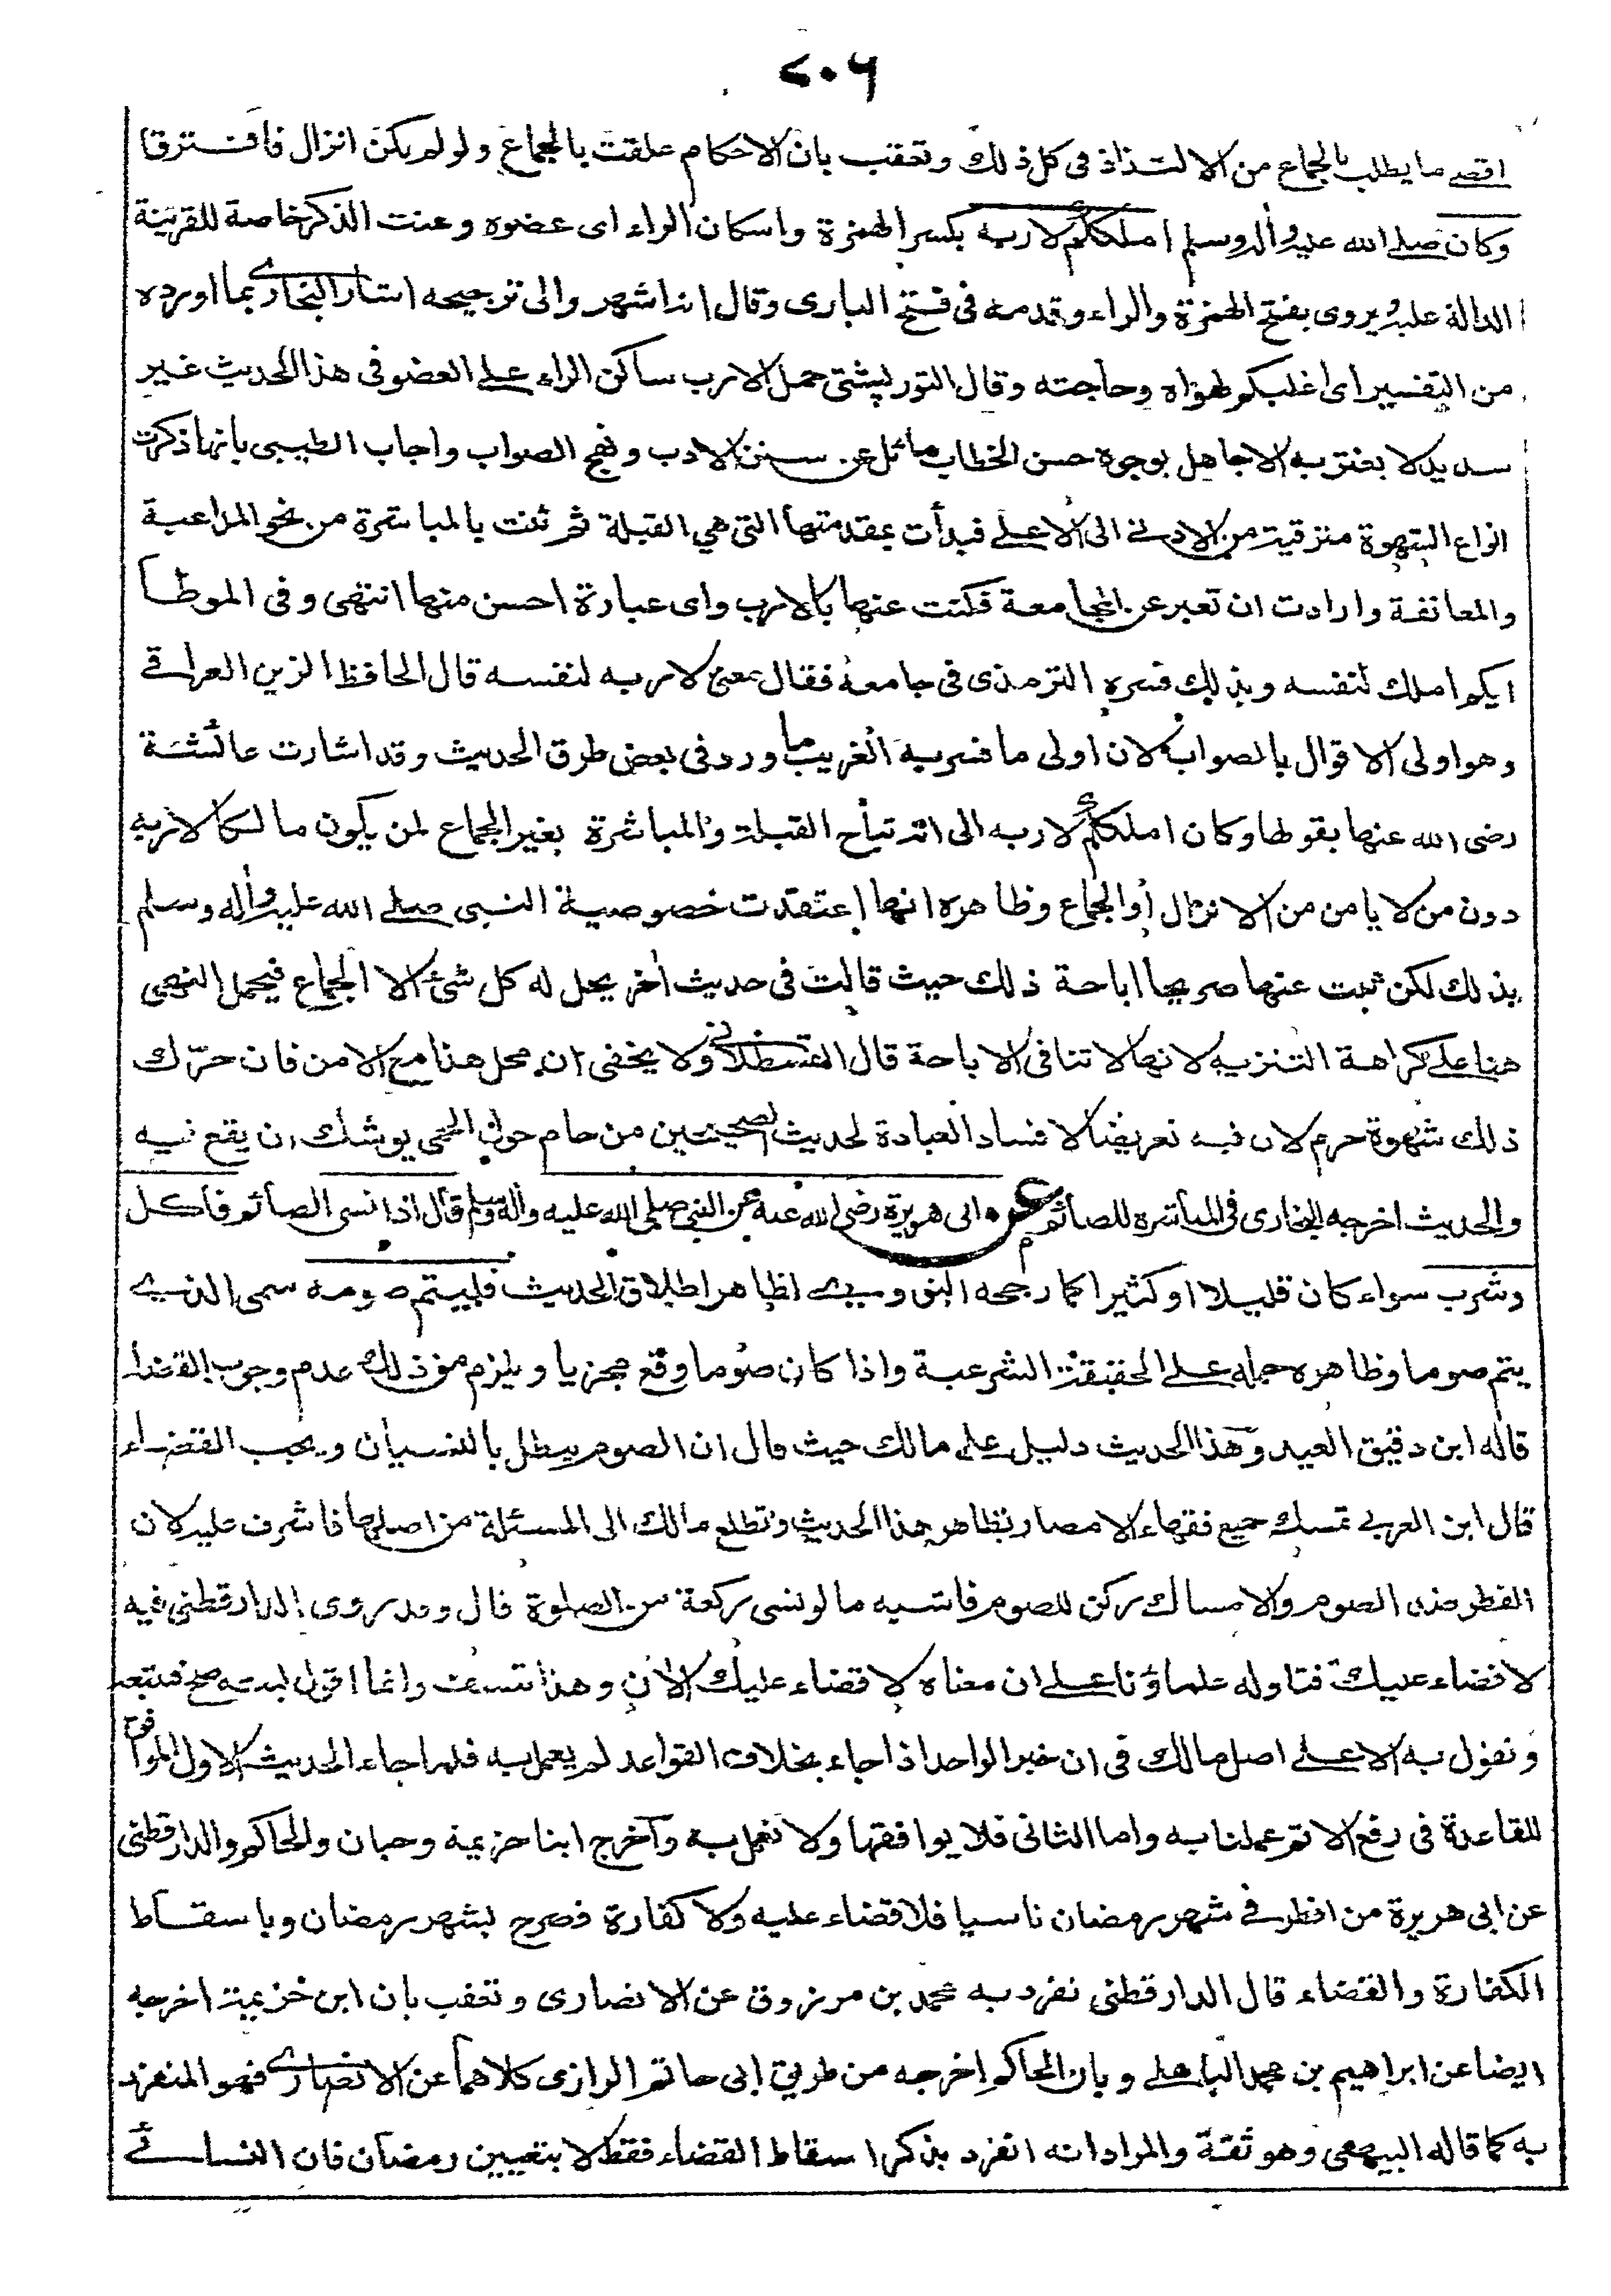 ٢٠٦
اقصى ما يطلب بالجماع من الالتذاذ فى كل ذلك وتعقب بان الاحكام علقت بالجماع ولو لم يكن انزال فافترقا
وكان صلى الله عليه وآله وسلم املككم لاربه بكسر الهمزة واسكان الراء اى عضوه وعنت الذكر خاصة للقرينة
الدالة عليه ويروى بفتح الهمزة والراء وقدمه فى فتح البارى وقال انه اشهر والى ترجيحه اشار البخارى بما اورده
من التفسير اى اغلبكم لهواه وحاجته وقال التوربشتى حمل الارب ساكن الراء على العضو فى هذا الحديث غير
سديد لا يغتر به الا جاهل بوجوه حسن الخطاب مائل عن سنن الادب ونهج الصواب واجاب الطيبى بانها ذكرت
انواع الشهوة مترقية من الادنى الى الاعلى فبدأت بمقدمتها التى هى القبلة ثم ثنت بالمباشرة من نحو المداعبة
والمعانقة وارادت ان تعبر عن المجامعة فكنت عنها بالارب واى عبارة احسن منها انتهى وفى الموطأ
ايكم املك لنفسه وبذلك فسره الترمذى فى جامعه فقال معنى لاربه لنفسه قال الحافظ الزين العراقى
وهو اولى الاقوال بالصواب لان اولى ما فسر به الغريب ما ورد فى بعض طرق الحديث وقد اشارت عائشة
رضى الله عنها بقولها وكان املككم لاربه الى انه تباح القبلة والمباشرة بغير الجماع لمن يكون مالكا لاربه
دون من لا يامن من الانزال أو الجماع وظاهره انها اعتقدت خصوصية النبى صلى الله عليه وآله وسلم
بذلك لكن ثبت عنها صريحا اباحة ذلك حيث قالت فى حديث آخر يحل له كل شئ الا الجماع فيحمل النهى
هنا على كراهة التنزيه لانها لا تنافى الاباحة قال القسطلانى ولا يخفى ان محل هذا مع الامن فان حرّك
ذلك شهوة حرم لان فيه تعريضا لافساد العبادة لحديث الصحيحين من حام حول الحمى يوشك ان يقع فيه
والحديث اخرجه البخارى فى المباشرة للصائم عن ابى هريرة رضى الله عنه عن النبى صلى الله عليه وآله وسلم قال اذا نسى الصائم فاكل
وشرب سواء كان قليلا او كثيرا كما رجحه النووى لظاهر اطلاق الحديث فليتم صومه سمى الذى
يتم صوما وظاهره حمله على الحقيقة الشرعية واذا كان صوما وقع مجزيا ويلزم من ذلك عدم وجوب القضاء
قاله ابن دقيق العيد وهذا الحديث دليل على مالك حيث قال ان الصوم يبطل بالنسيان ويجب القضاء
قال ابن العربى تمسك جميع فقهاء الامصار بظاهر هذا الحديث وتطلع مالك الى المسئلة من اصلها فاشرف عليه لان
الفطر ضد الصوم والامساك ركن للصوم فاشبه ما لو نسى ركعة من الصلوة قال وقد روى الدارقطنى فيه
لا قضاء عليك فتاوله علماؤنا على ان معناه لا قضاء عليك الآن وهذا تعسف وانما اقول ليته صح فنتبعه
ونقول به الا على اصل مالك فى ان خبر الواحد اذا جاء بخلاف القواعد لم يعمل به فلما جاء الحديث الاول الموافق
للقاعدة فى رفع الاثم عملنا به واما الثانى فلا يوافقها ولا نعمل به وآخرج ابنا خزيمة وحبان والحاكم والدارقطنى
عن ابى هريرة من افطر فى شهر رمضان ناسيا فلا قضاء عليه ولا كفارة فصرح بشهر رمضان وباسقاط
الكفارة والقضاء قال الدارقطنى تفرد به محمد بن مرزوق عن الانصارى وتعقب بان ابن خزيمة اخرجه
ايضا عن ابراهيم بن محمد الباهلى وبان الحاكم اخرجه من طريق ابى حاتم الرازى كلاهما عن الانصارى فهو المنفرد
به كما قاله البيهقى وهو ثقة والمراد انه انفرد بذكر اسقاط القضاء فقط لا بتعيين رمضان فان النسائى